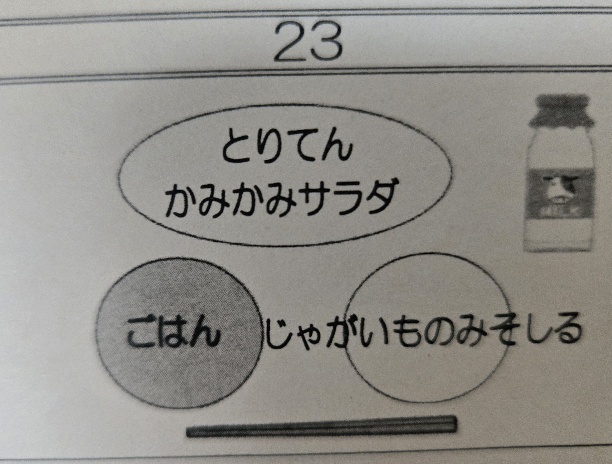 23
とりてん
かみかみサラダ
MILK
ごはん
じゃがいものみそしる